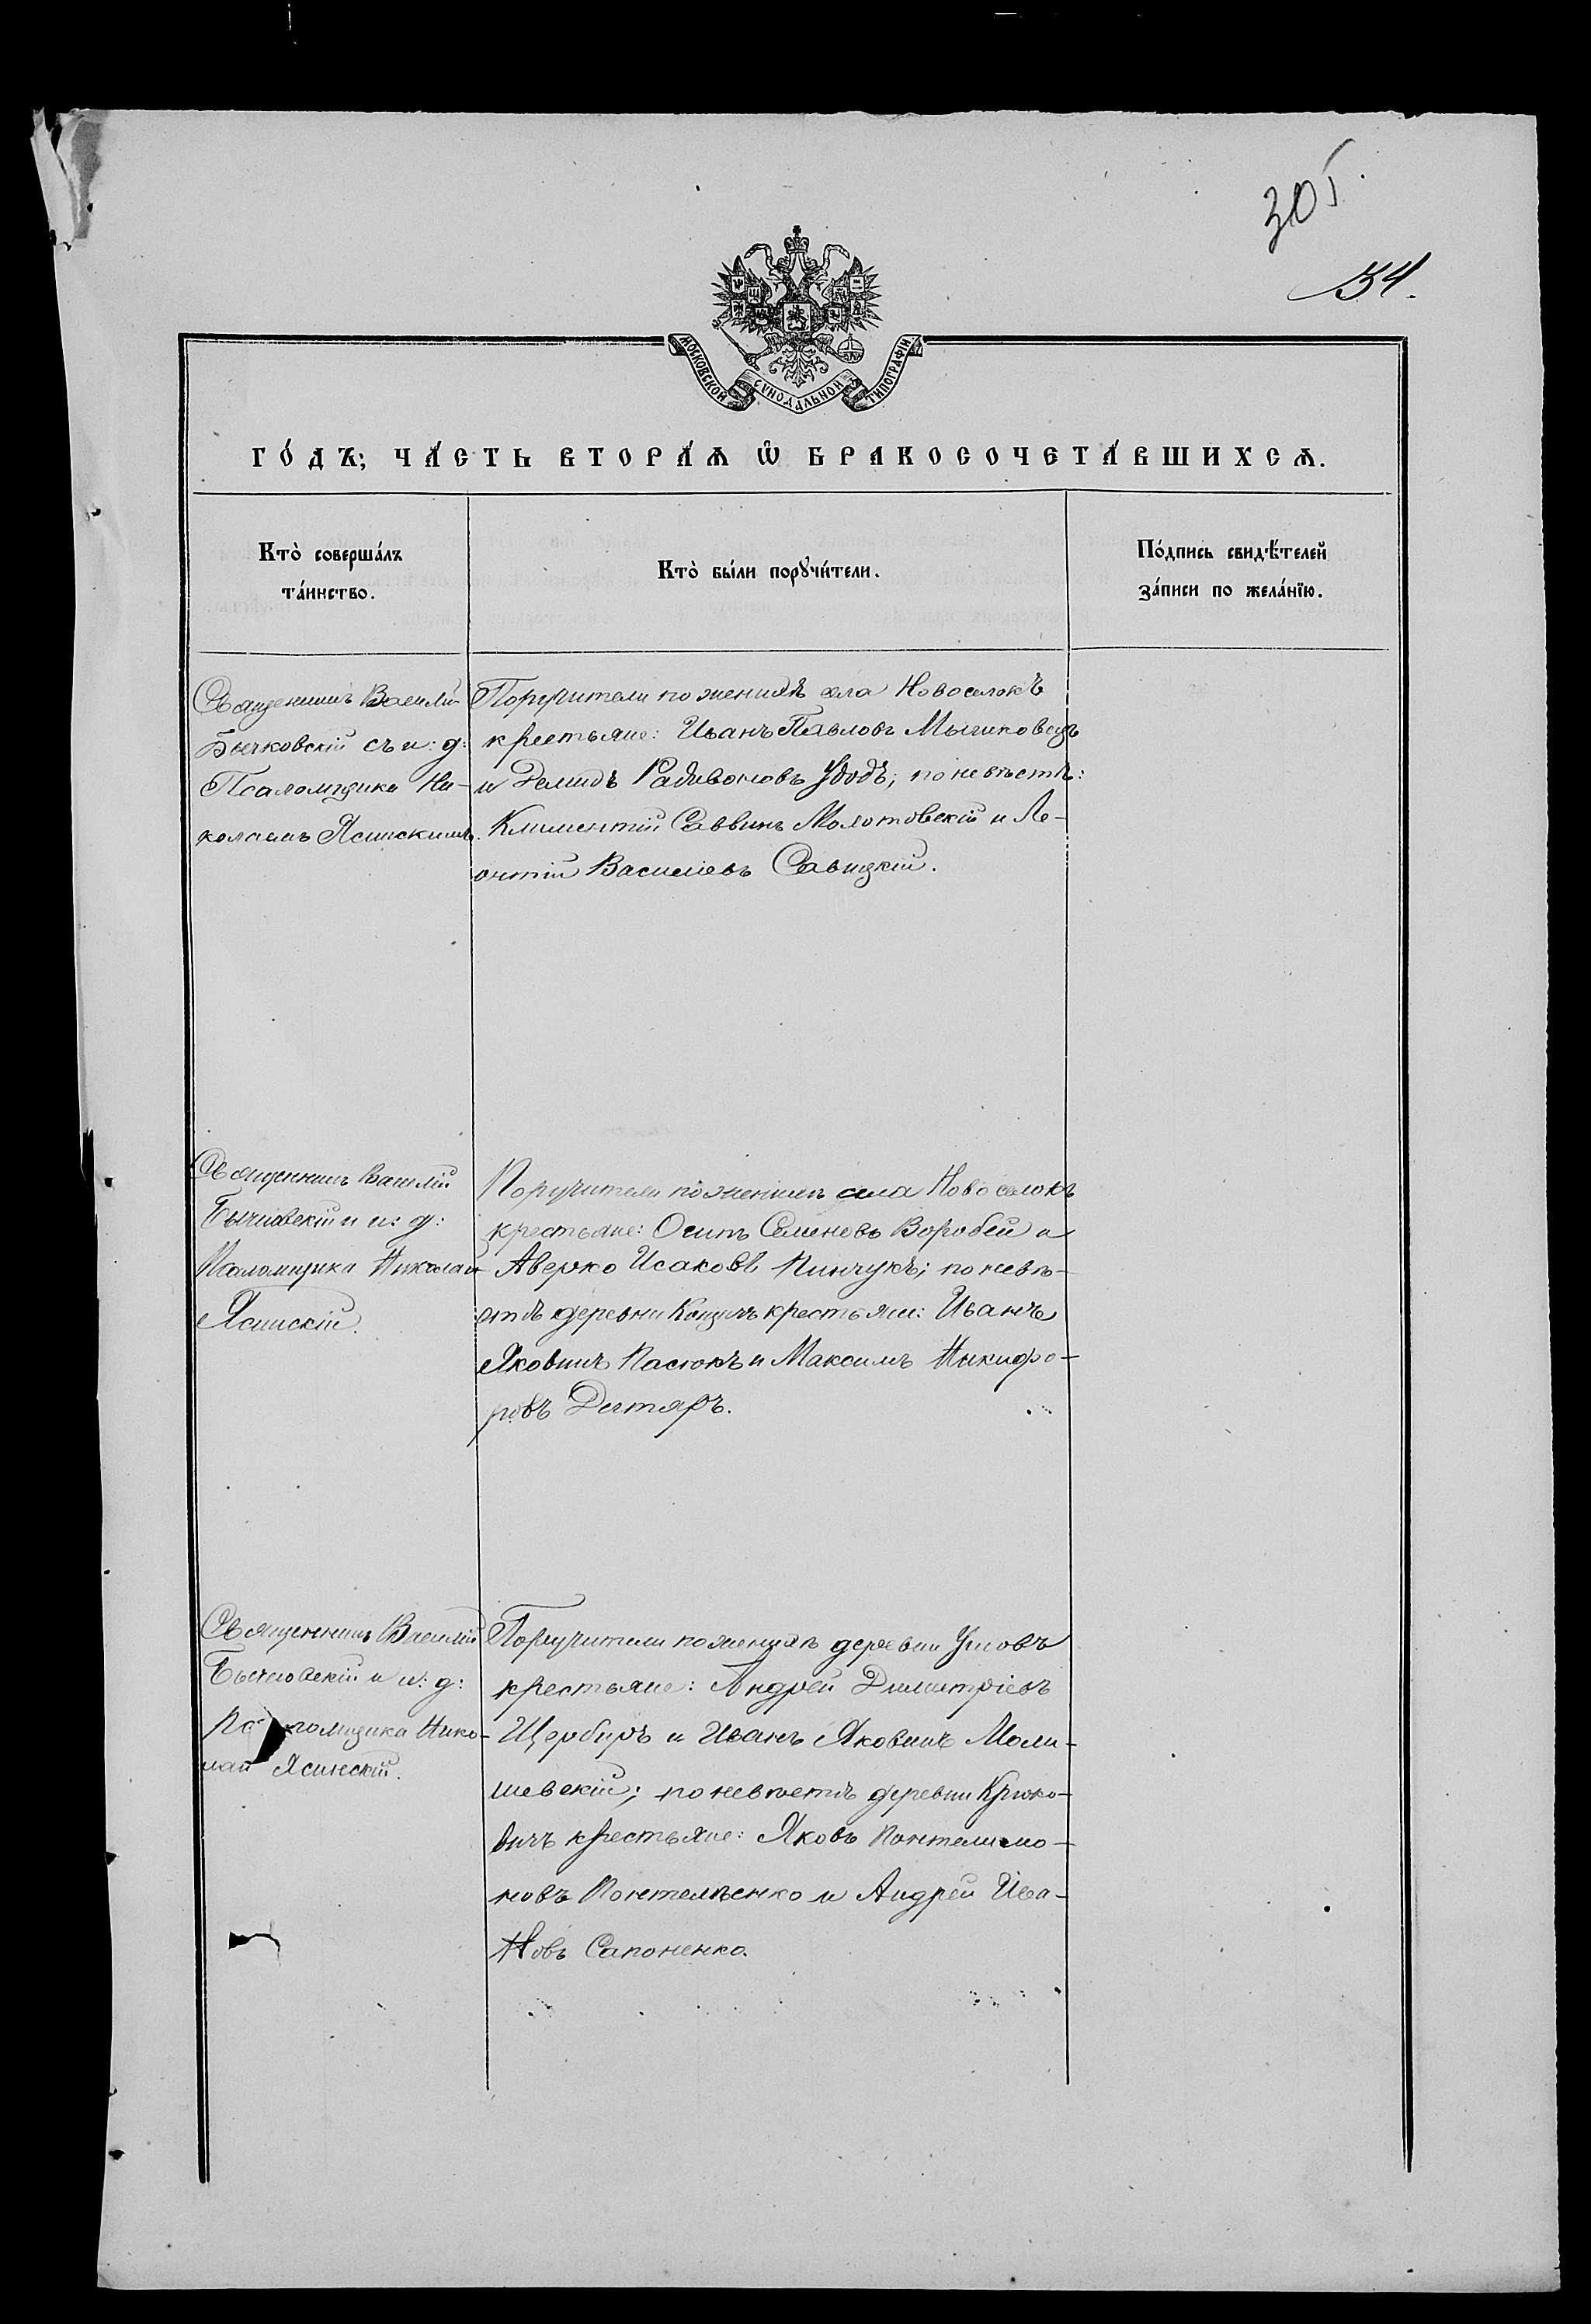 305.
34.
МОСКОВСКОЙ СѴНОДАЛЬНОЙ ТИПОГРАФІИ
ГО́ДЪ; ЧА́СТЬ ВТОРА́Ѧ Ѽ БРАКОСОЧЕТА́ВШИХСѦ.
Кто̀ соверша́лъ
та́инство.
Кто̀ бы́ли порꙋчи́тели.
По́дпись свидѣ́телей
за́писи по жела́нїю.
Священникъ Василій
Бычковскій съ и: д:
Псаломщика Ни-
колаемъ Ясинскимъ.
Поручители по женихѣ села Новоселокъ
крестьяне: Иванъ Павловъ
и Демидъ Радивоновъ Удодъ; по невѣстѣ:
Климентій Саввинъ Молотовскій и Ле-
онтій Василіевъ Савицкій.
Священникъ Василій
Бычковскій и и: д:
Псаломщика Николай
Ясинскій.
Поручители по женихѣ села Новоселокъ
крестьяне: Осипъ Семеновъ Воробей и
Аверко Исаковъ Пинчукъ; по невѣ-
стѣ деревни крестьяне: Иванъ
Яковлевъ Пасюкъ и Максимъ Никифо-
ровъ Дегтяръ.
Священникъ Василій
Бычковскій и и: д:
Псаломщика Нико-
лай Ясинскій.
Поручители по женихѣ деревни
крестьяне: Андрей Димитріевъ
Щербиръ и Иванъ Яковлевъ Моли-
шевскій; по невѣстѣ деревни Крюко-
вичъ крестьяне: Яковъ Пантелимо-
новъ Пантелѣенко и Андрей Ива-
новъ Сапоненко.